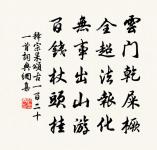 雲門乾屎橛
全超法報化
無事出山遊
百錢杖頭挂
釋宗杲頌古一百二十
一首詞典網集